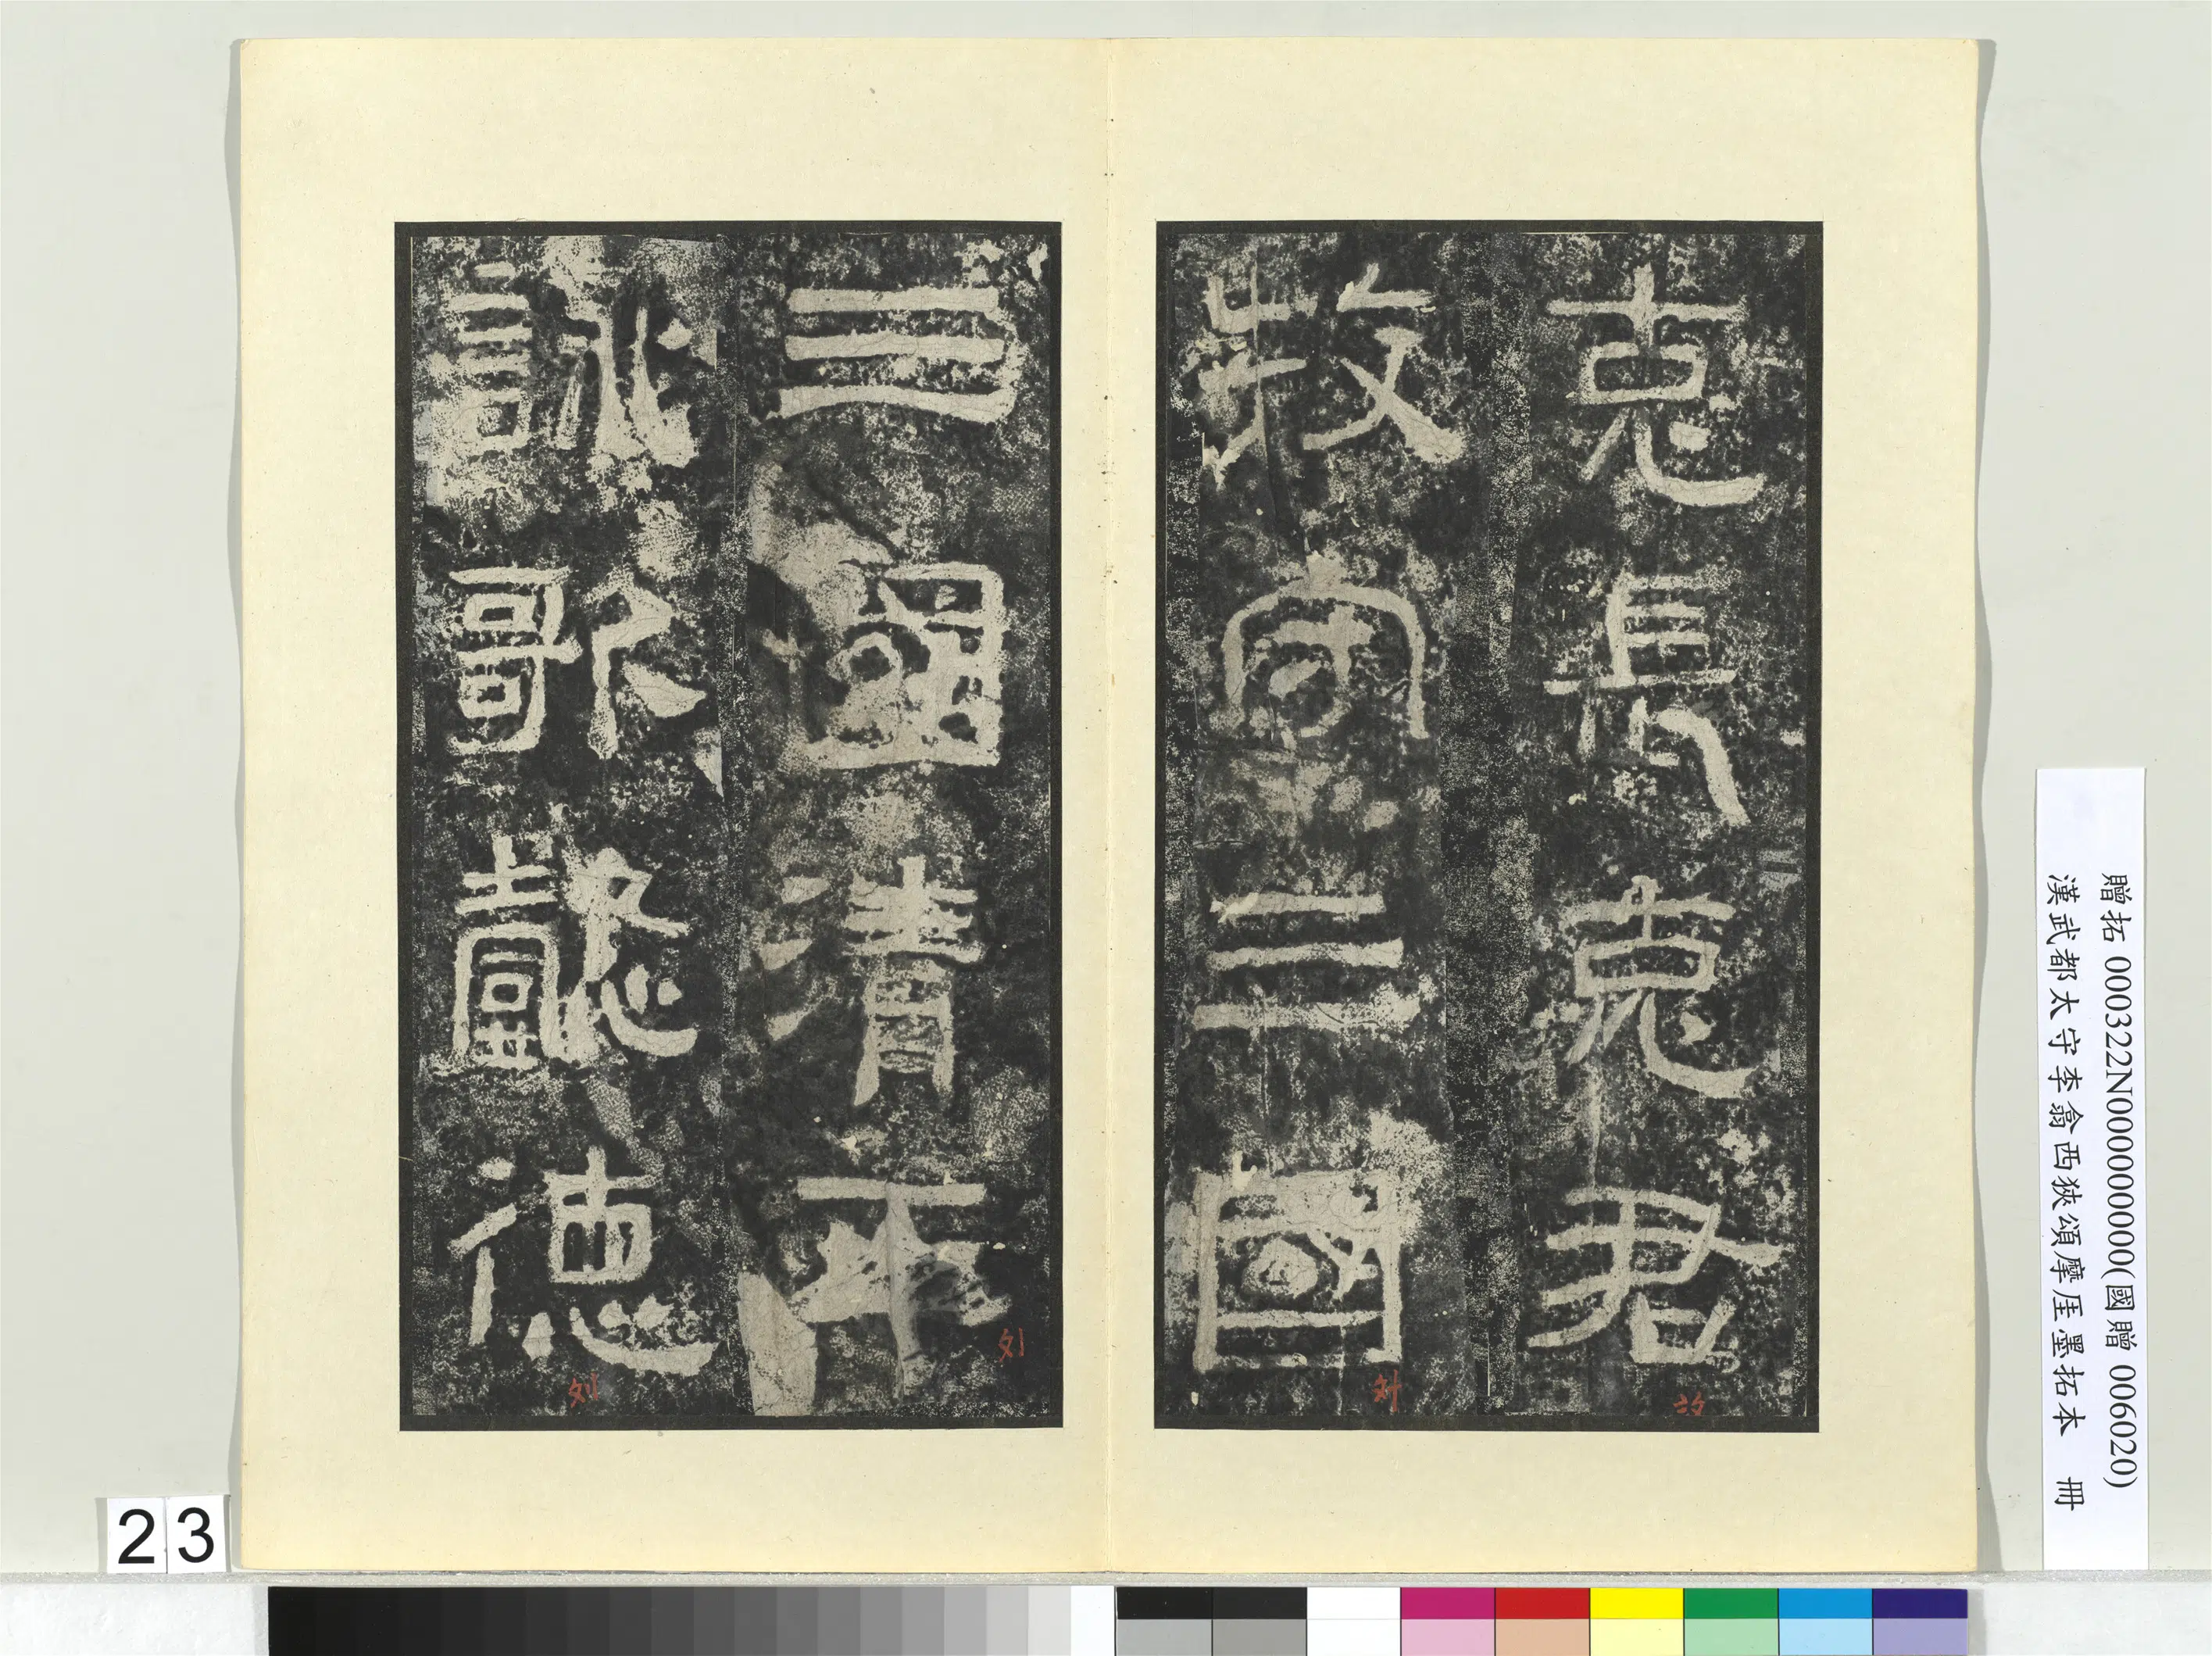 克長克君
牧守三國
三國清平
詠歌懿德
贈拓 000322N000000000(國贈 006020)
漢武都太守李翕西狹頌摩厓墨拓本 冊
23